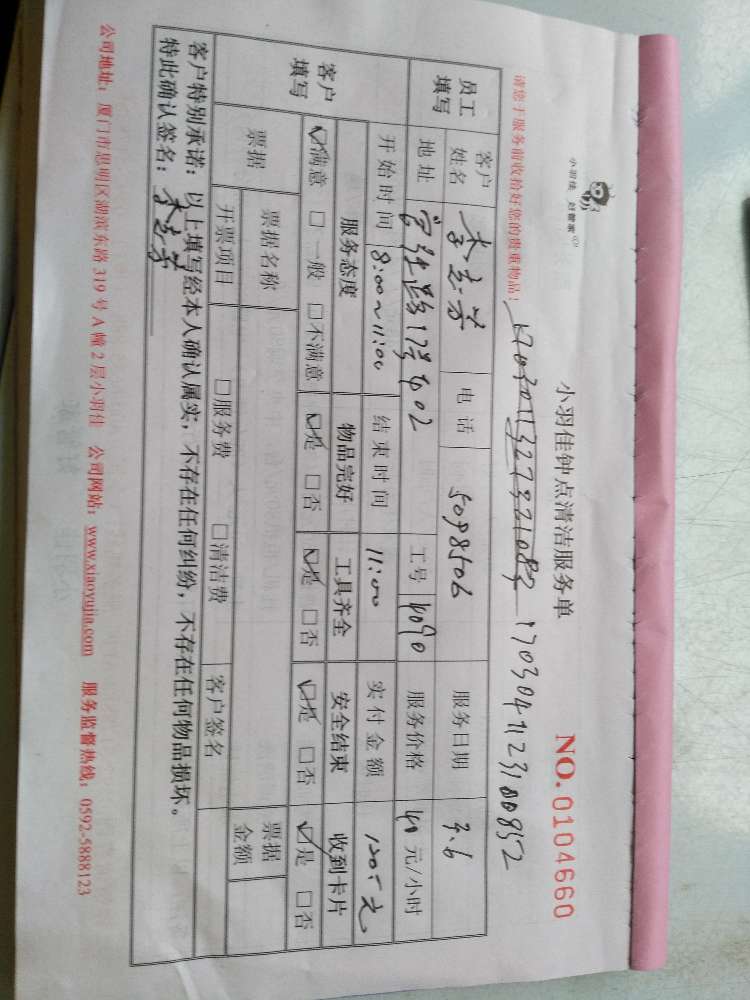 小羽佳 好管家
小羽佳钟点清洁服务单
NO. 0104660
请您于服务前收拾好您的贵重物品!
员工填写 客户姓名 电话 5098506 服务日期 3.6
地址 工号 4090 服务价格 40 元/小时
客户填写 开始时间 8:00~11:00 结束时间 11:00 实付金额 120元
服务态度 物品完好 工具齐全 安全结束 收到卡片
☑满意 □一般 □不满意 ☑是 □否 ☑是 □否 ☑是 □否 ☑是 □否
票据 票据名称 票据金额
开票项目 □服务费 □清洁费 客户签名
客户特别承诺:以上填写经本人确认属实,不存在任何纠纷,不存在任何物品损坏。
特此确认签名:
公司地址:厦门市思明区湖滨东路 319 号 A 幢 2 层小羽佳 公司网站:www.xiaoyujia.com 服务监督热线:0592-5888123